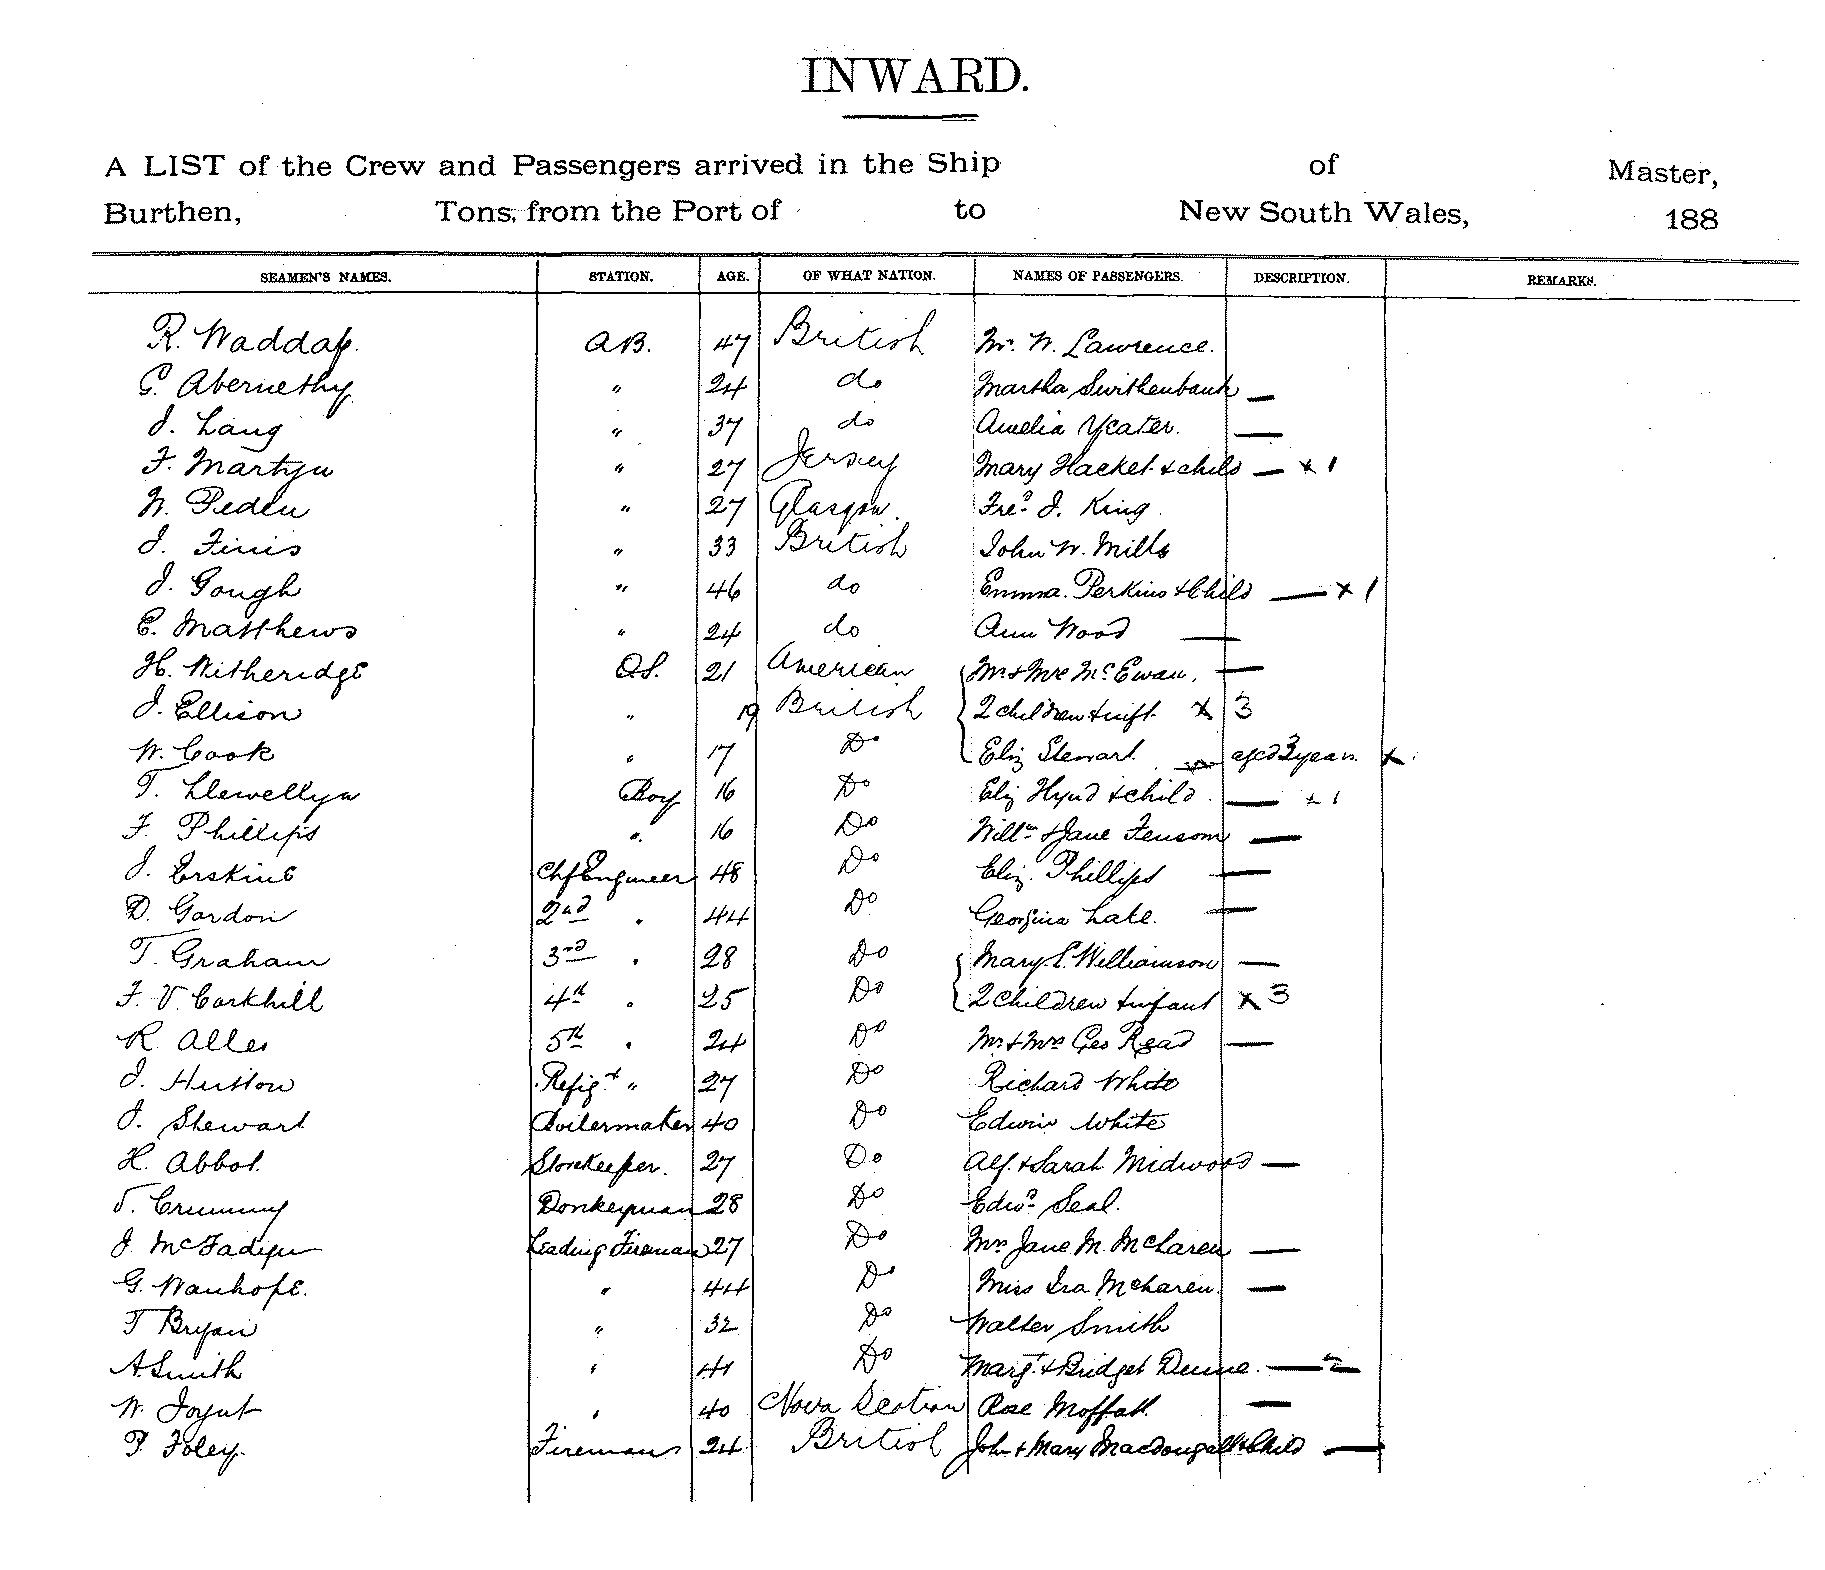 INWARD.
A LIST of the Crew and Passengers arrived in the Ship of Master,
Burthen, Tons, from the Port of to New South Wales, 188
SEAMEN'S NAMES. STATION. AGE. OF WHAT NATION. NAMES OF PASSENGERS. DESCRIPTION. REMARKS.
R. Waddap. A.B. 47 British Mr. W. Lawrence.
C. Abernethy " 24 do Martha Swithenbank —
J. Lang " 37 do Amelia Yeater. —
F. Martyn " 27 Jersey Mary Hacket & child — x 1
W. Peden " 27 Glasgow. Fred J. King.
J. Finis " 33 British John W. Mills
J. Gough " 46 do Emma. Perkins & Child — x 1
E. Matthews " 24 do Ann Wood —
H. Witheridge O.S. 21 American Mr & Mrs McEwan. —
J. Ellison " 19 British 2 children & inft. x 3
W. Cook " 17 Do Eliz Stewart aged 3 years x
T. Llewellyn Boy 16 Do Eliz Hynd & child. — x 1
F. Phillips " 16 Do Willm & Jane Fensom —
J. Erskine Chf Engineer 48 Do Eliz. Phillips —
D. Gordon 2nd " 44 Do Georgina Lake. —
T. Graham 3rd " 28 Do Mary E. Williamson —
F. V. Corkhill 4th " 25 Do 2 children & infant x 3
R. Alles 5th " 24 Do Mr & Mrs Geo Read —
J. Hutton Refigt " 27 Do Richard White
J. Stewart Boilermaker 40 Do Edwin White
H. Abbot. Storekeeper. 27 Do Alf. & Sarah Midwood —
T. Crummy Donkeyman 28 Do Edwd Seal.
J. McFadyen Leading Fireman 27 Do Mrs Jane M. McLaren —
G. Wauhope. " 44 Do Miss Ira McLaren. —
T Bryan " 32 Do Walter Smith
A. Smith " 41 Do Margt & Bridget Dunne. — 2
W. " 40 Nova Scotian Rose Moffatt. —
P. Foley. Fireman 24 British John & Mary Macdougall & Child —